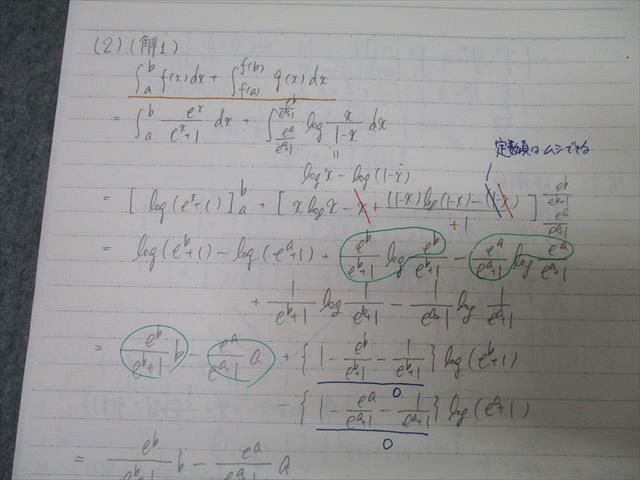 (2) (解1)
∫_a^b f(x)dx + ∫_{f(a)}^{f(b)} g(x)dx
= ∫_a^b e^x/(e^x+1) dx + ∫_{e^a/(e^a+1)}^{e^b/(e^b+1)} log x/(1-x) dx
log x - log(1-x)
定数項はムシできる
= [log(e^x+1)]_a^b + [x log x - x + ((1-x)log(1-x) - (1-x))/+1]_{e^a/(e^a+1)}^{e^b/(e^b+1)}
= log(e^b+1) - log(e^a+1) + e^b/(e^b+1) log e^b/(e^b+1) - e^a/(e^a+1) log e^a/(e^a+1)
+ 1/(e^b+1) log 1/(e^b+1) - 1/(e^a+1) log 1/(e^a+1)
= e^b/(e^b+1) b - e^a/(e^a+1) a + {1 - e^b/(e^b+1) - 1/(e^b+1)} log(e^b+1)
0
- {1 - e^a/(e^a+1) - 1/(e^a+1)} log(e^a+1)
0
= e^b/(e^b+1) b - e^a/(e^a+1) a